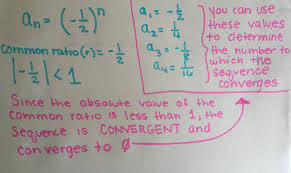 aₙ = (-½)ⁿ
common ratio(r) = -½
|-½| < 1
a₁ = -½
a₂ = ¼
a₃ = -⅛
a₄ = 1/16
you can use
these values
to determine
the number to
which the
sequence
converges
Since the absolute value of the
common ratio is less than 1, the
sequence is CONVERGENT and
converges to 0